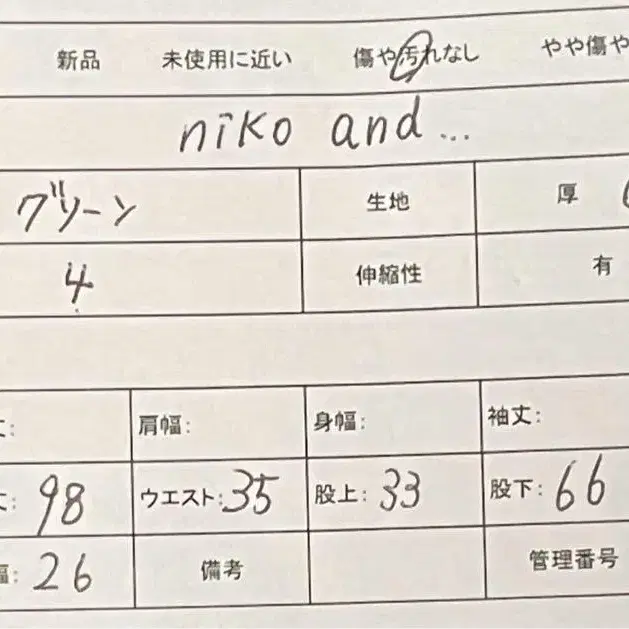 新品 未使用に近い 傷や汚れなし やや傷や
niko and ...
グリーン 生地 厚
4 伸縮性 有
丈: 肩幅: 身幅: 袖丈:
丈: 98 ウエスト: 35 股上: 33 股下: 66
幅: 26 備考 管理番号